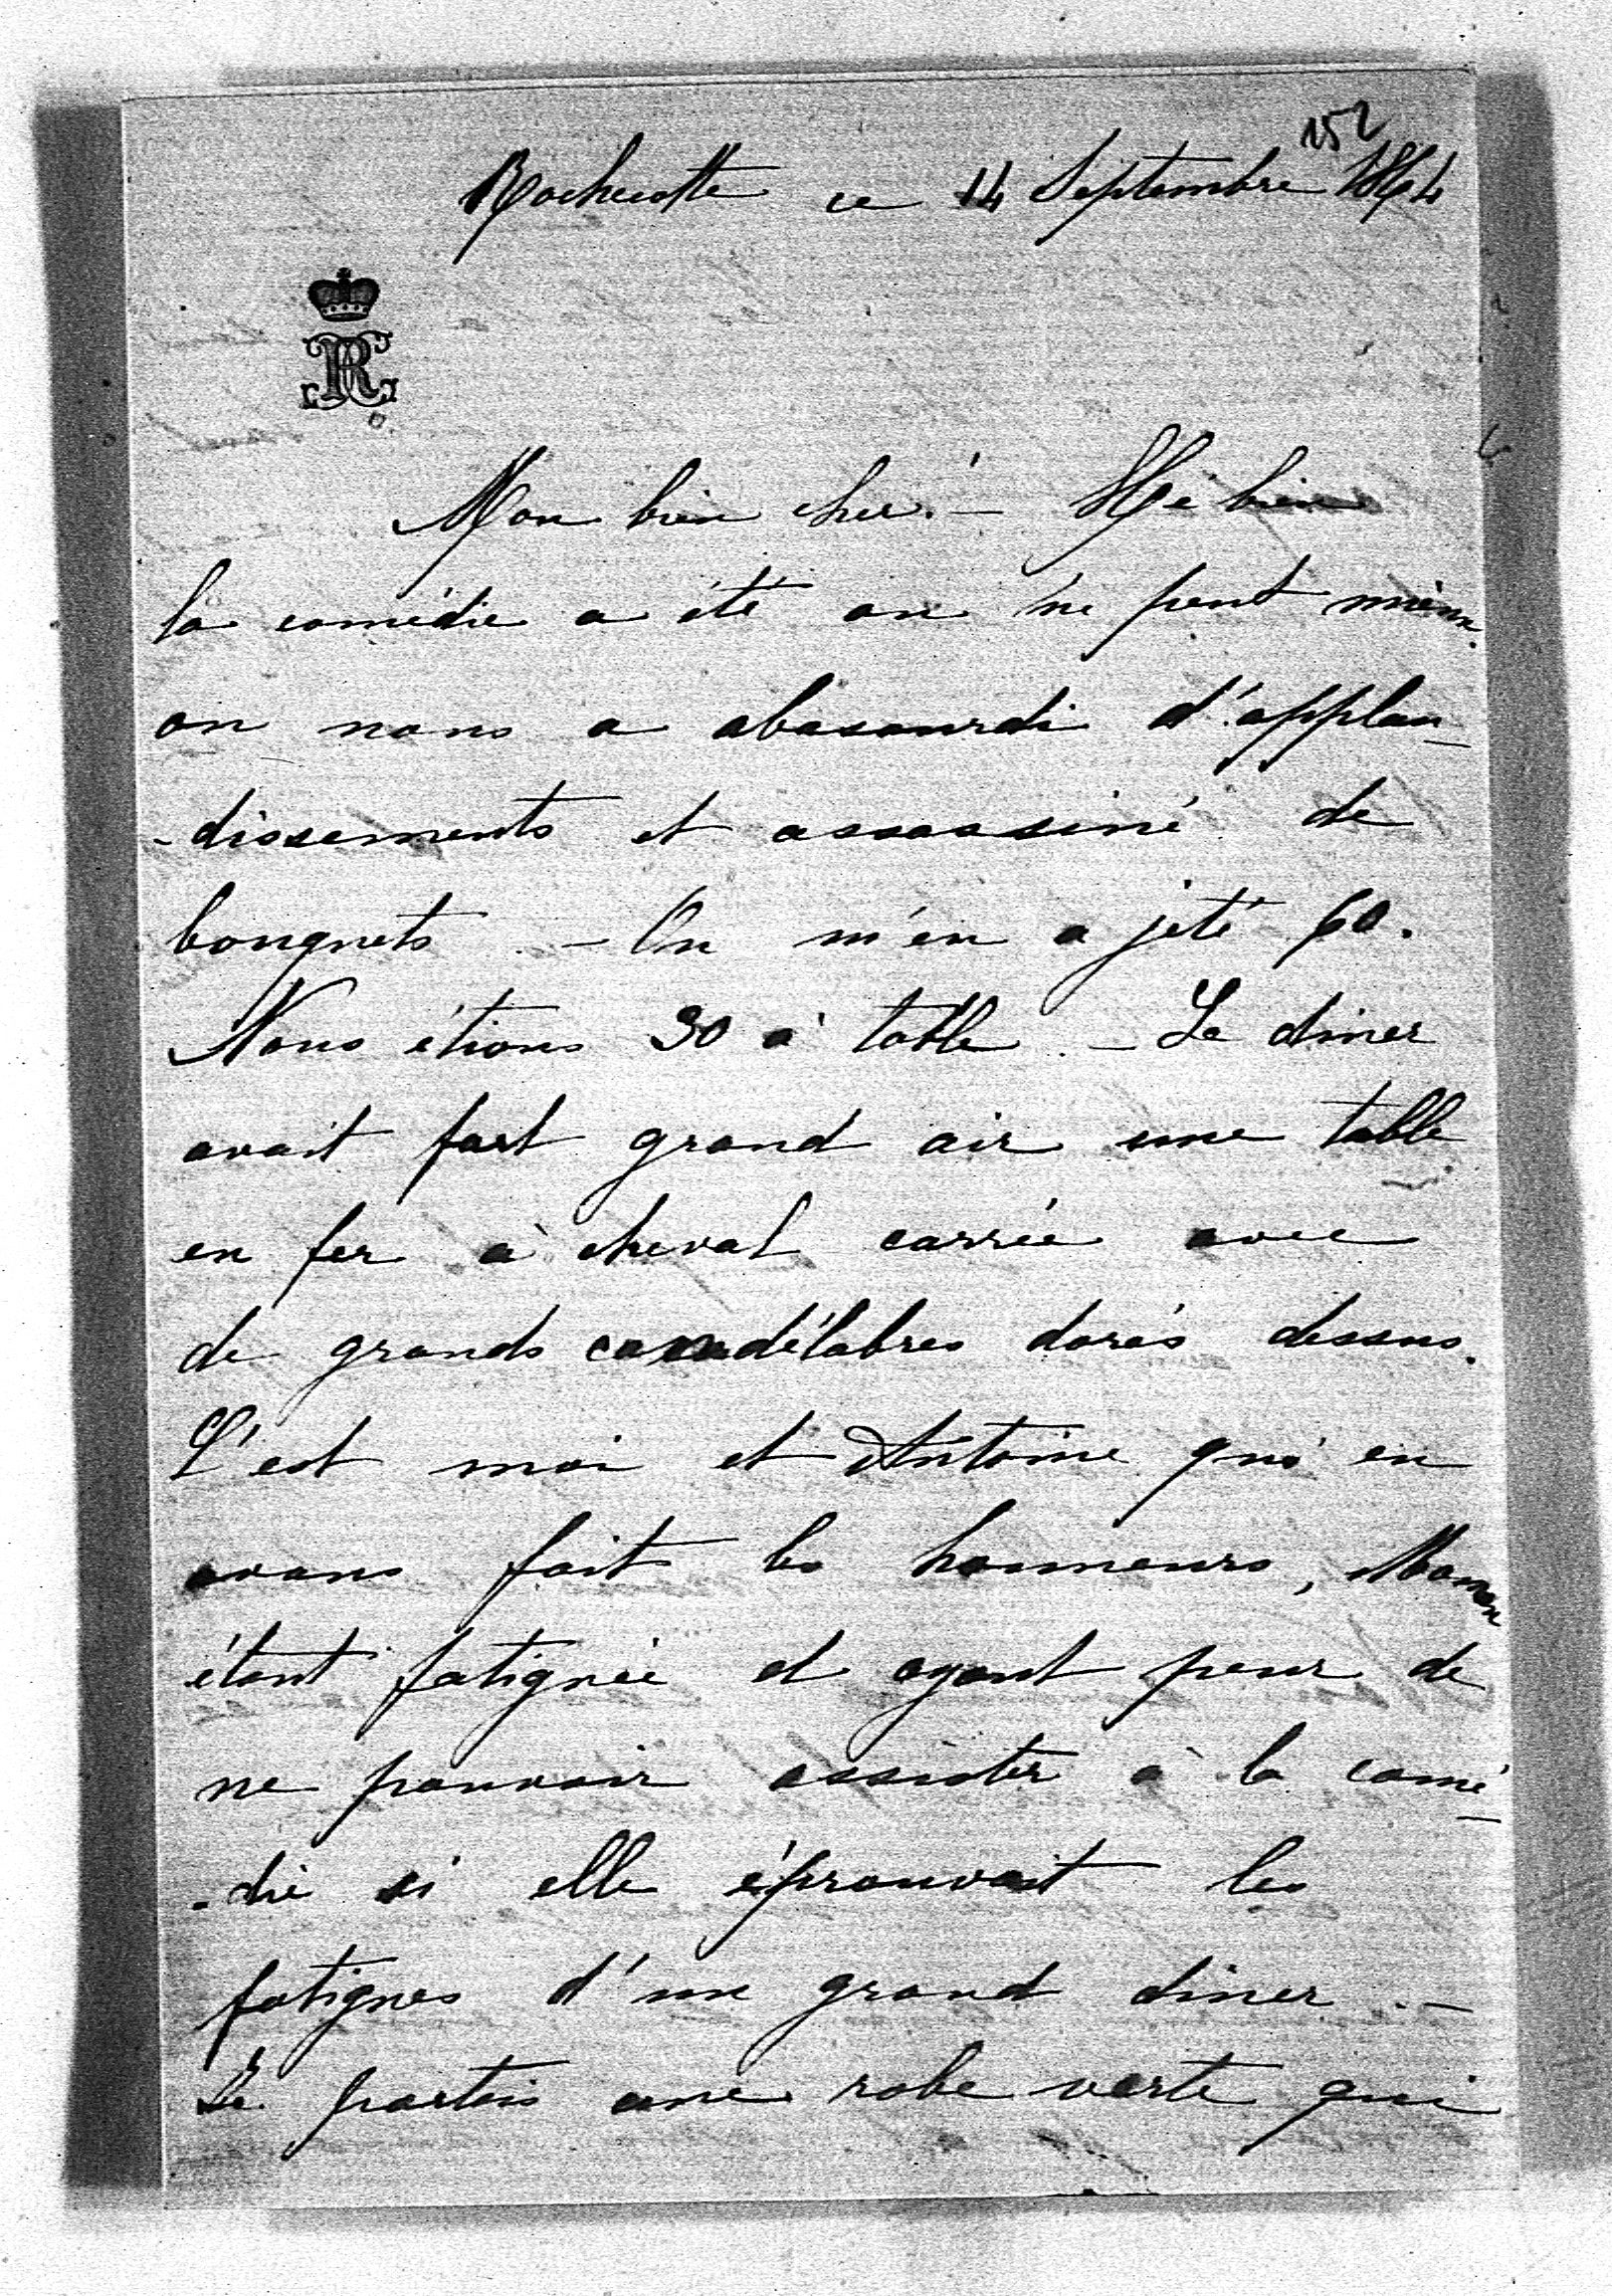 152
Rochecotte ce 14 Septembre 1864
R
Mon bien cher. – Hé bien
la comédie a été on ne peut mieux.
on nous a abasourdi d'applau-
-dissements et assassiné de
bouquets. – On m'en a jeté 60.
Nous étions 30 à table. – Le diner
avait fort grand air une table
en fer à cheval carrée avec
de grands candélabres dorés dessus.
C'est moi et Antoine qui en
avons fait les honneurs, Maman
étant fatiguée et ayant peur de
ne pouvoir assister à la comé-
-die si elle éprouvait les
fatigues d'un grand diner. –
Je portais une robe verte qui